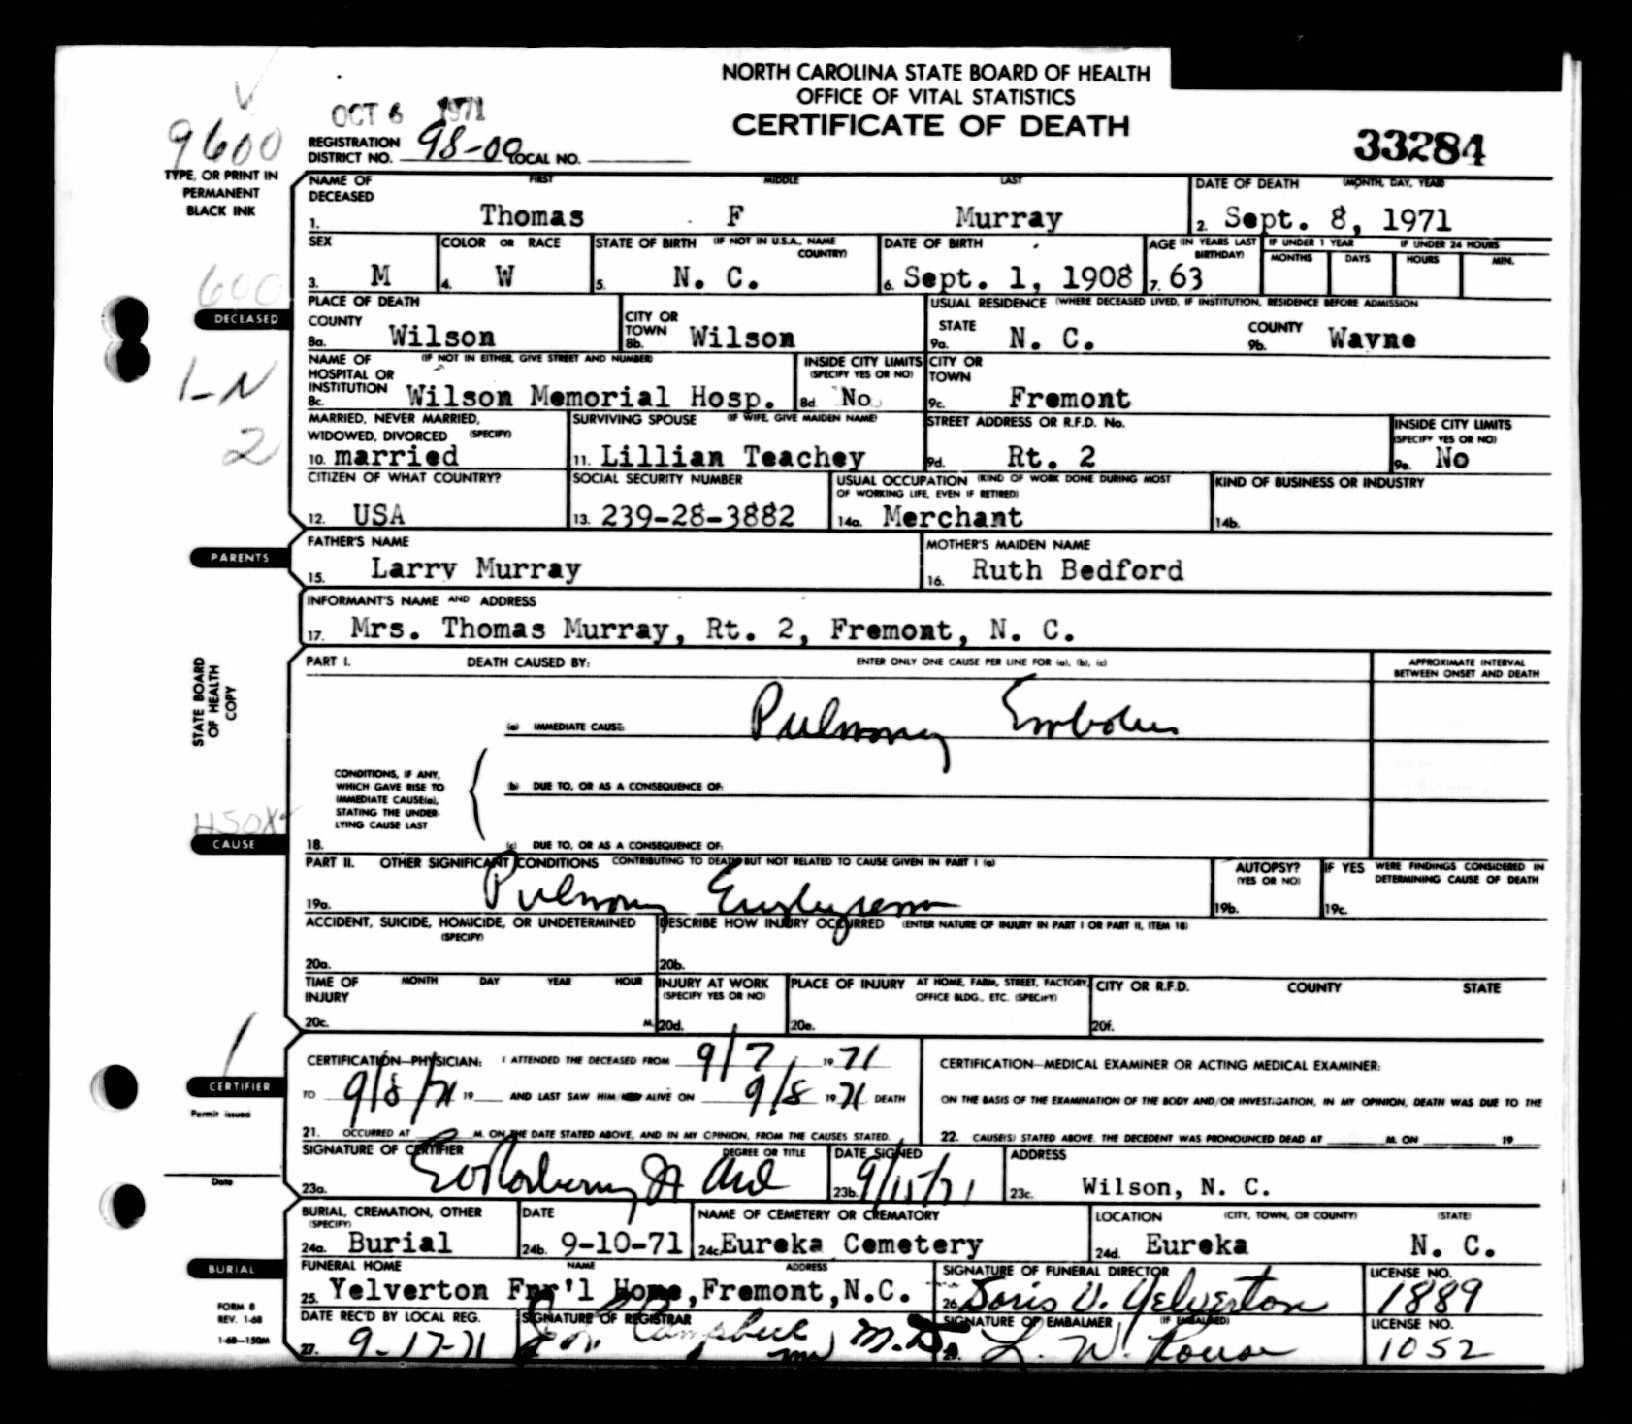 NORTH CAROLINA STATE BOARD OF HEALTH
OFFICE OF VITAL STATISTICS
CERTIFICATE OF DEATH
OCT 6 1971
33284
9600
REGISTRATION DISTRICT NO. 98-00 LOCAL NO.
TYPE, OR PRINT IN PERMANENT BLACK INK
NAME OF DECEASED FIRST MIDDLE LAST DATE OF DEATH (MONTH, DAY, YEAR)
1. Thomas F Murray 2. Sept. 8, 1971
SEX COLOR OR RACE STATE OF BIRTH (IF NOT IN U.S.A., NAME COUNTRY) DATE OF BIRTH AGE (IN YEARS LAST BIRTHDAY) IF UNDER 1 YEAR IF UNDER 24 HOURS
MONTHS DAYS HOURS MIN.
3. M 4. W 5. N. C. 6. Sept. 1, 1908 7. 63
600
DECEASED
PLACE OF DEATH USUAL RESIDENCE (WHERE DECEASED LIVED, IF INSTITUTION, RESIDENCE BEFORE ADMISSION
COUNTY CITY OR TOWN STATE COUNTY
8a. Wilson 8b. Wilson 9a. N. C. 9b. Wayne
1-N
2
NAME OF HOSPITAL OR INSTITUTION (IF NOT IN EITHER, GIVE STREET AND NUMBER) INSIDE CITY LIMITS (SPECIFY YES OR NO) CITY OR TOWN
8c. Wilson Memorial Hosp. 8d. No 9c. Fremont
MARRIED, NEVER MARRIED, WIDOWED, DIVORCED (SPECIFY) SURVIVING SPOUSE (IF WIFE, GIVE MAIDEN NAME) STREET ADDRESS OR R.F.D. No. INSIDE CITY LIMITS (SPECIFY YES OR NO)
10. married 11. Lillian Teachey 9d. Rt. 2 9e. No
CITIZEN OF WHAT COUNTRY? SOCIAL SECURITY NUMBER USUAL OCCUPATION (KIND OF WORK DONE DURING MOST OF WORKING LIFE, EVEN IF RETIRED) KIND OF BUSINESS OR INDUSTRY
12. USA 13. 239-28-3882 14a. Merchant 14b.
PARENTS
FATHER'S NAME MOTHER'S MAIDEN NAME
15. Larry Murray 16. Ruth Bedford
INFORMANT'S NAME AND ADDRESS
17. Mrs. Thomas Murray, Rt. 2, Fremont, N. C.
STATE BOARD OF HEALTH COPY
PART I. DEATH CAUSED BY: ENTER ONLY ONE CAUSE PER LINE FOR (a), (b), (c) APPROXIMATE INTERVAL BETWEEN ONSET AND DEATH
(a) IMMEDIATE CAUSE: Pulmonary Embolus
CONDITIONS, IF ANY, WHICH GAVE RISE TO IMMEDIATE CAUSE(a), STATING THE UNDERLYING CAUSE LAST
(b) DUE TO, OR AS A CONSEQUENCE OF:
18. (c) DUE TO, OR AS A CONSEQUENCE OF:
CAUSE
PART II. OTHER SIGNIFICANT CONDITIONS CONTRIBUTING TO DEATH BUT NOT RELATED TO CAUSE GIVEN IN PART I (a) AUTOPSY? (YES OR NO) IF YES WERE FINDINGS CONSIDERED IN DETERMINING CAUSE OF DEATH
19a. Pulmonary Emphysema 19b. 19c.
ACCIDENT, SUICIDE, HOMICIDE, OR UNDETERMINED (SPECIFY) DESCRIBE HOW INJURY OCCURRED (ENTER NATURE OF INJURY IN PART I OR PART II, ITEM 18)
20a. 20b.
TIME OF INJURY MONTH DAY YEAR HOUR INJURY AT WORK (SPECIFY YES OR NO) PLACE OF INJURY AT HOME, FARM, STREET, FACTORY, OFFICE BLDG., ETC. (SPECIFY) CITY OR R.F.D. COUNTY STATE
20c. M. 20d. 20e. 20f.
CERTIFIER
Permit issued
Date
CERTIFICATION—PHYSICIAN: I ATTENDED THE DECEASED FROM 9/7, 19 71
TO 9/8/71 19 AND LAST SAW HIM ALIVE ON 9/8 19 71 DEATH
21. OCCURRED AT M. ON THE DATE STATED ABOVE, AND IN MY OPINION, FROM THE CAUSES STATED.
CERTIFICATION—MEDICAL EXAMINER OR ACTING MEDICAL EXAMINER:
ON THE BASIS OF THE EXAMINATION OF THE BODY AND/OR INVESTIGATION, IN MY OPINION, DEATH WAS DUE TO THE
22. CAUSE(S) STATED ABOVE. THE DECEDENT WAS PRONOUNCED DEAD AT M. ON 19
SIGNATURE OF CERTIFIER DEGREE OR TITLE DATE SIGNED ADDRESS
23a. 23b. 9/15/71 23c. Wilson, N. C.
BURIAL, CREMATION, OTHER (SPECIFY) DATE NAME OF CEMETERY OR CREMATORY LOCATION (CITY, TOWN, OR COUNTY) (STATE)
24a. Burial 24b. 9-10-71 24c. Eureka Cemetery 24d. Eureka N. C.
BURIAL
FUNERAL HOME NAME ADDRESS SIGNATURE OF FUNERAL DIRECTOR LICENSE NO.
25. Yelverton Fnr'l Home, Fremont, N.C. 26. Doris V. Yelverton 1889
FORM 8
REV. 1-68
1-68—150M
DATE REC'D BY LOCAL REG. SIGNATURE OF REGISTRAR SIGNATURE OF EMBALMER (IF EMBALMED) LICENSE NO.
27. 9-17-71 Campbell, M.D. L. W. Rouse 1052